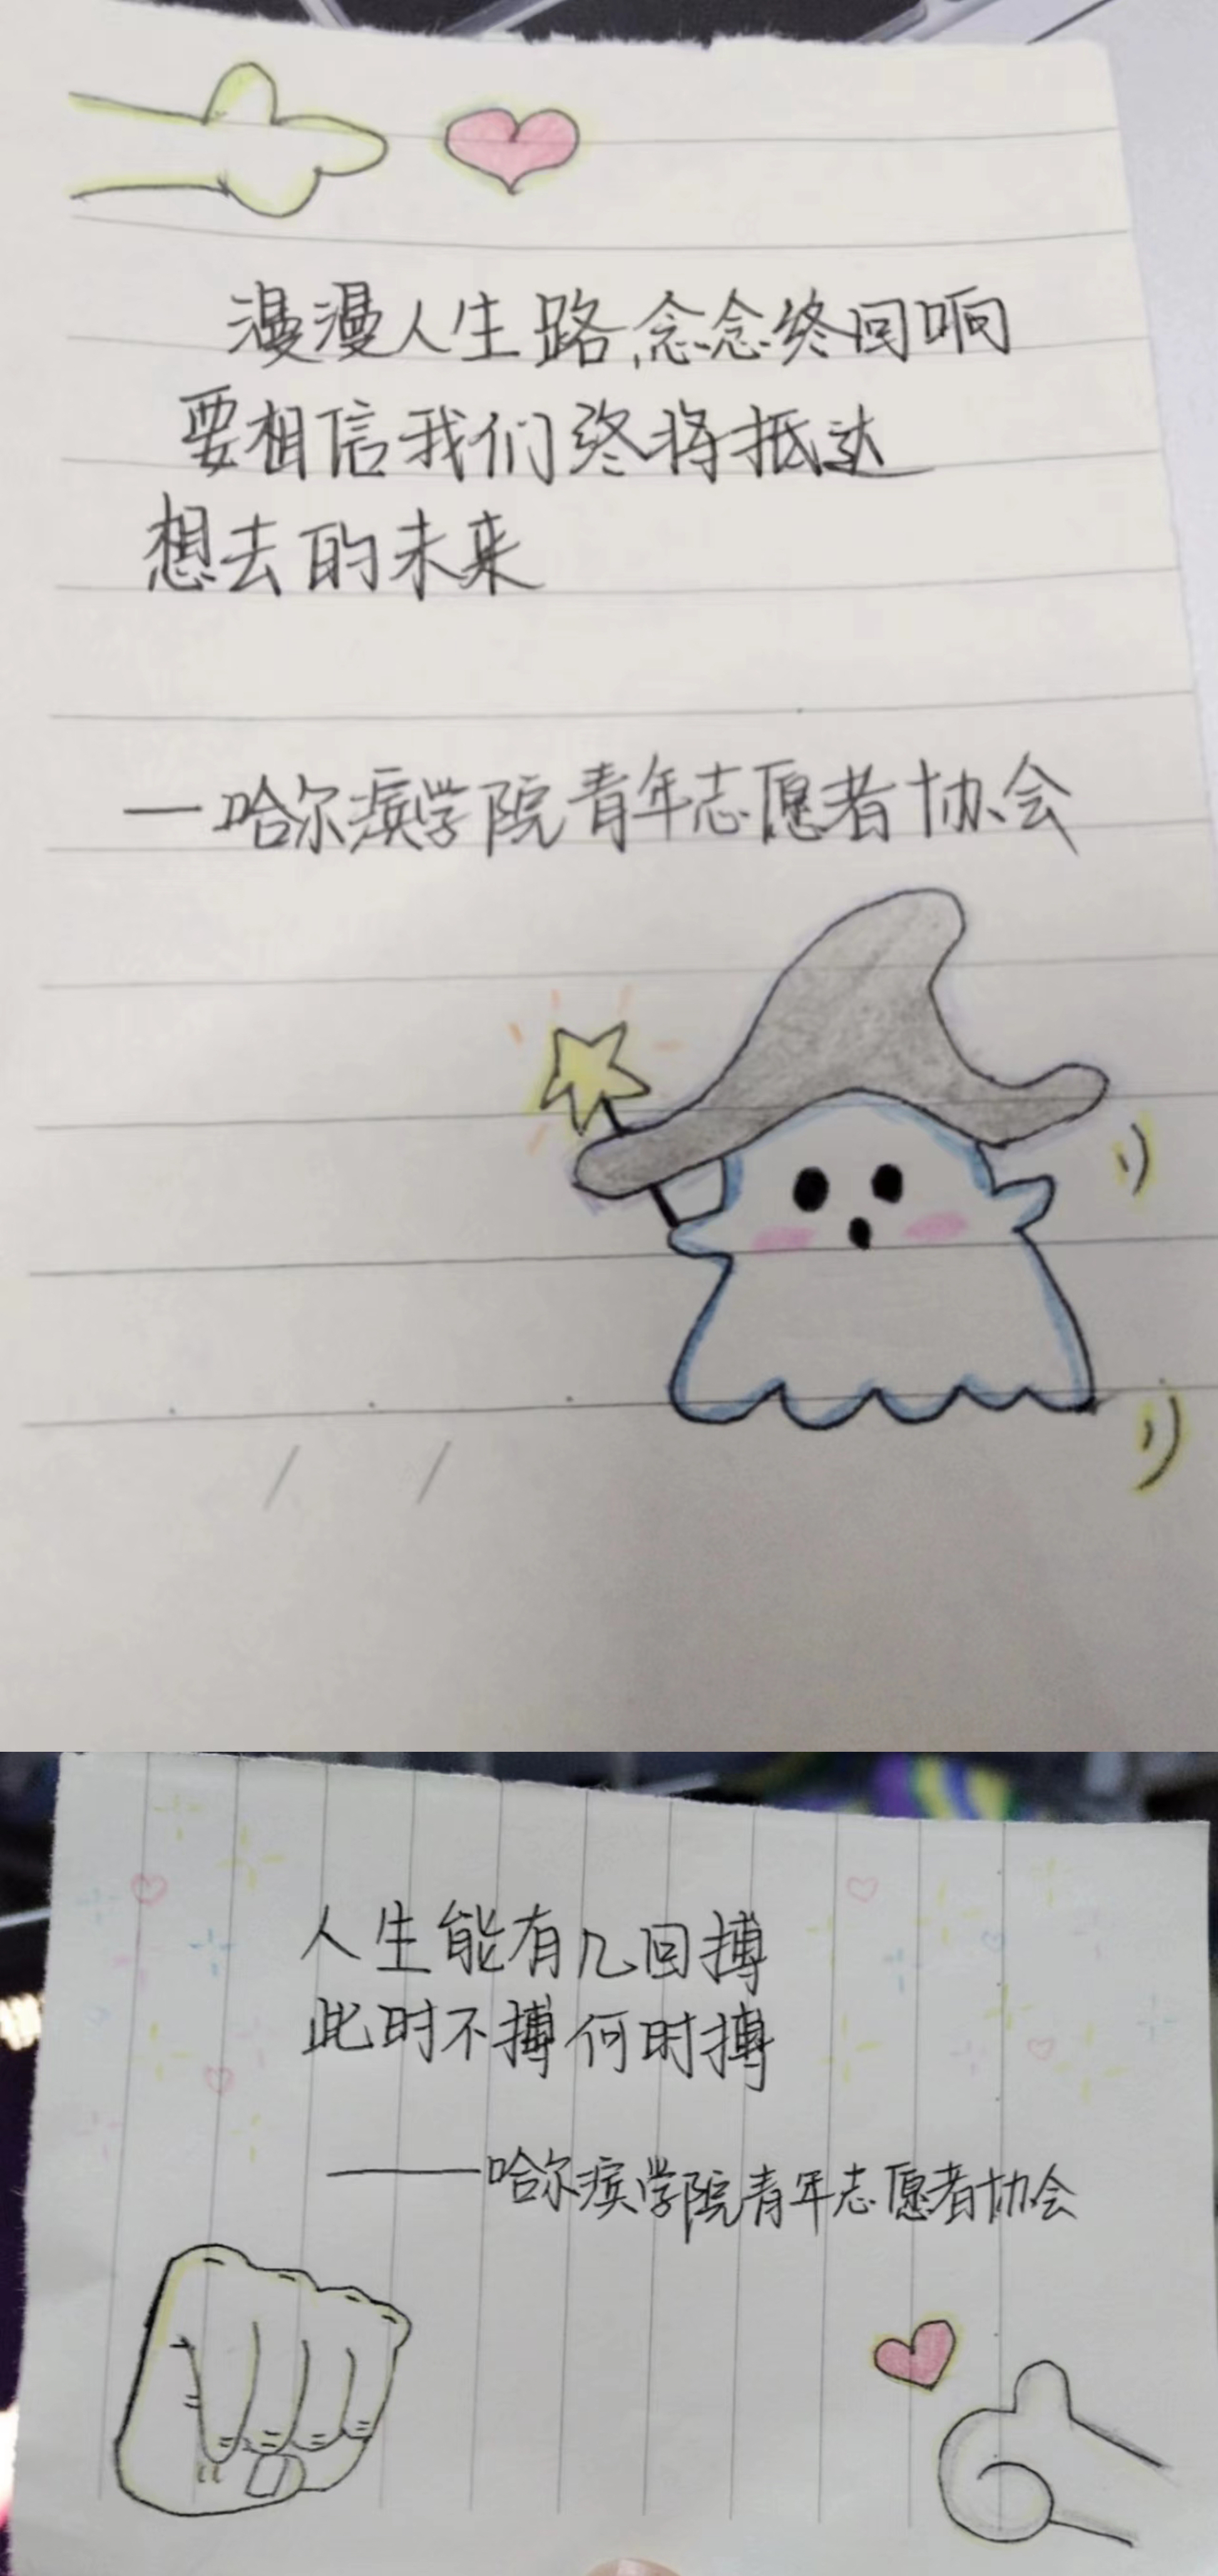 漫漫人生路,念念终回响
要相信我们终将抵达
想去的未来
—哈尔滨学院青年志愿者协会
人生能有几回搏
此时不搏何时搏
——哈尔滨学院青年志愿者协会